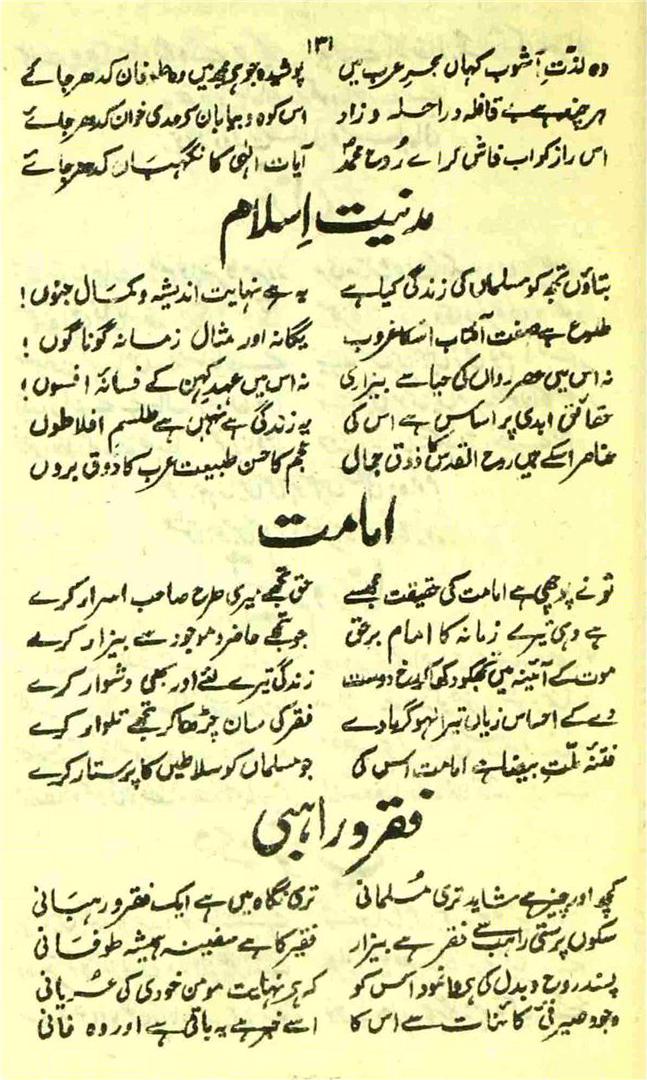 ۱۳۱
وہ لذتِ آشوب کہاں بحرِ عرب میں پوشیدہ جو ہے مجھ میں وہ طوفان کدھر جائے
ہر چند ہے بے قافلہ و راحلہ و زاد اس کوہ و بیاباں سے حدی خوان کدھر جائے
اس راز کو اب فاش کر اے رُوحِ محمدؐ آیات الٰہی کا نگہبان کدھر جائے
مدنیت اِسلام
بتاؤں تجھ کو مسلماں کی زندگی کیا ہے یہ ہے نہایت اندیشہ و کمال جنوں!
طلوع ہے صفت آفتاب اسکا غروب یگانہ اور مثال زمانہ گوناگوں!
نہ اس میں عصر رواں کی حیا سے بیزاری نہ اس میں عہد کہن کے فسانہ افسوں!
حقائق ابدی پر اساس ہے اس کی یہ زندگی ہے نہیں ہے طلسم افلاطوں
عناصر اسکے ہیں روح القدس کا ذوق جمال عجم کا حسن طبیعت عرب کا ذوق بروں
امامت
تو نے پوچھی ہے امامت کی حقیقت مجھ سے حق تجھے میری طرح صاحب اسرار کرے
ہے وہی تیرے زمانہ کا امام برحق جو تجھے حاضر و موجود سے بیزار کرے
موت کے آئینہ میں تجھکو دکھا کر رخ دوست زندگی تیرے لئے اور بھی دشوار کرے
دے کے احساس زیاں تیرا لہو گرما دے فقر کی سان چڑھا کر تجھے تلوار کرے
فتنۂ ملّتِ بیضا ہے امامت اس کی جو مسلماں کو سلاطیں کا پرستار کرے
فقر و راہبی
کچھ اور چیز ہے شاید تری مُسلمانی تری نگاہ میں ہے ایک فقر و رہبانی
سکوں پرستی راہب سے فقر ہے بیزار فقیر کا ہے سفینہ ہمیشہ طوفانی
پسند روح و بدن کی ہے وانمود اس کو کہ ہے نہایت مومن خودی کی عریانی
وجود صیرفیٔ کائنات ہے اس کا اسے خبر ہے یہ باقی ہے اور وہ فانی